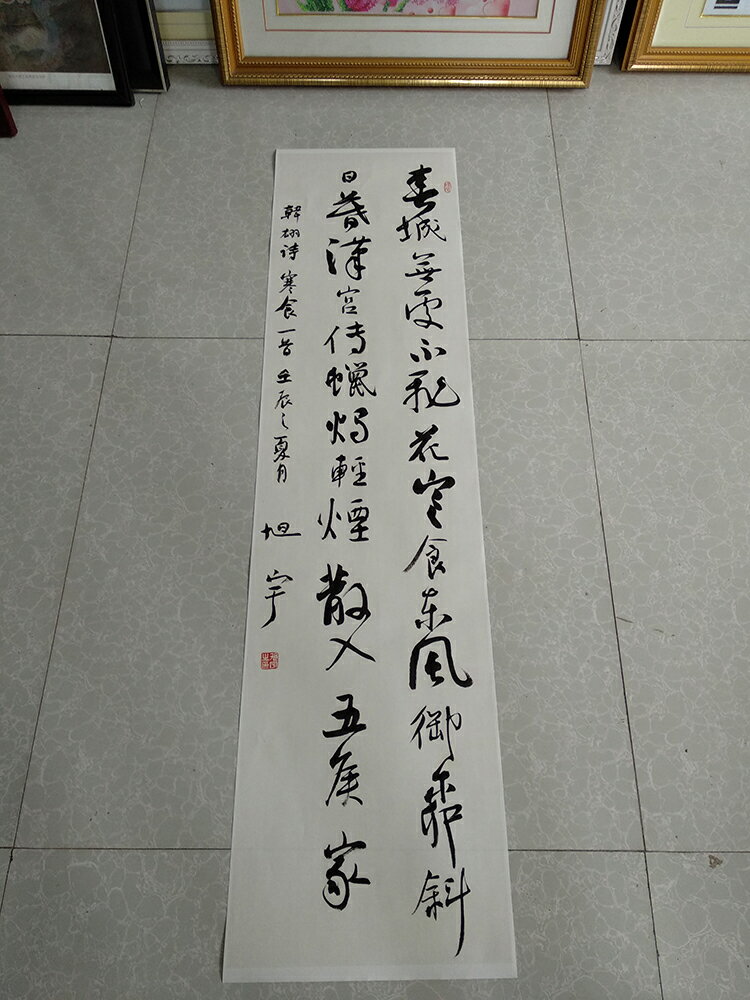 春城無處不飛花寒食東风御柳斜
日暮漢宮傳蠟燭輕煙散入五侯家
韓翃诗寒食一首壬辰之夏月
旭宇